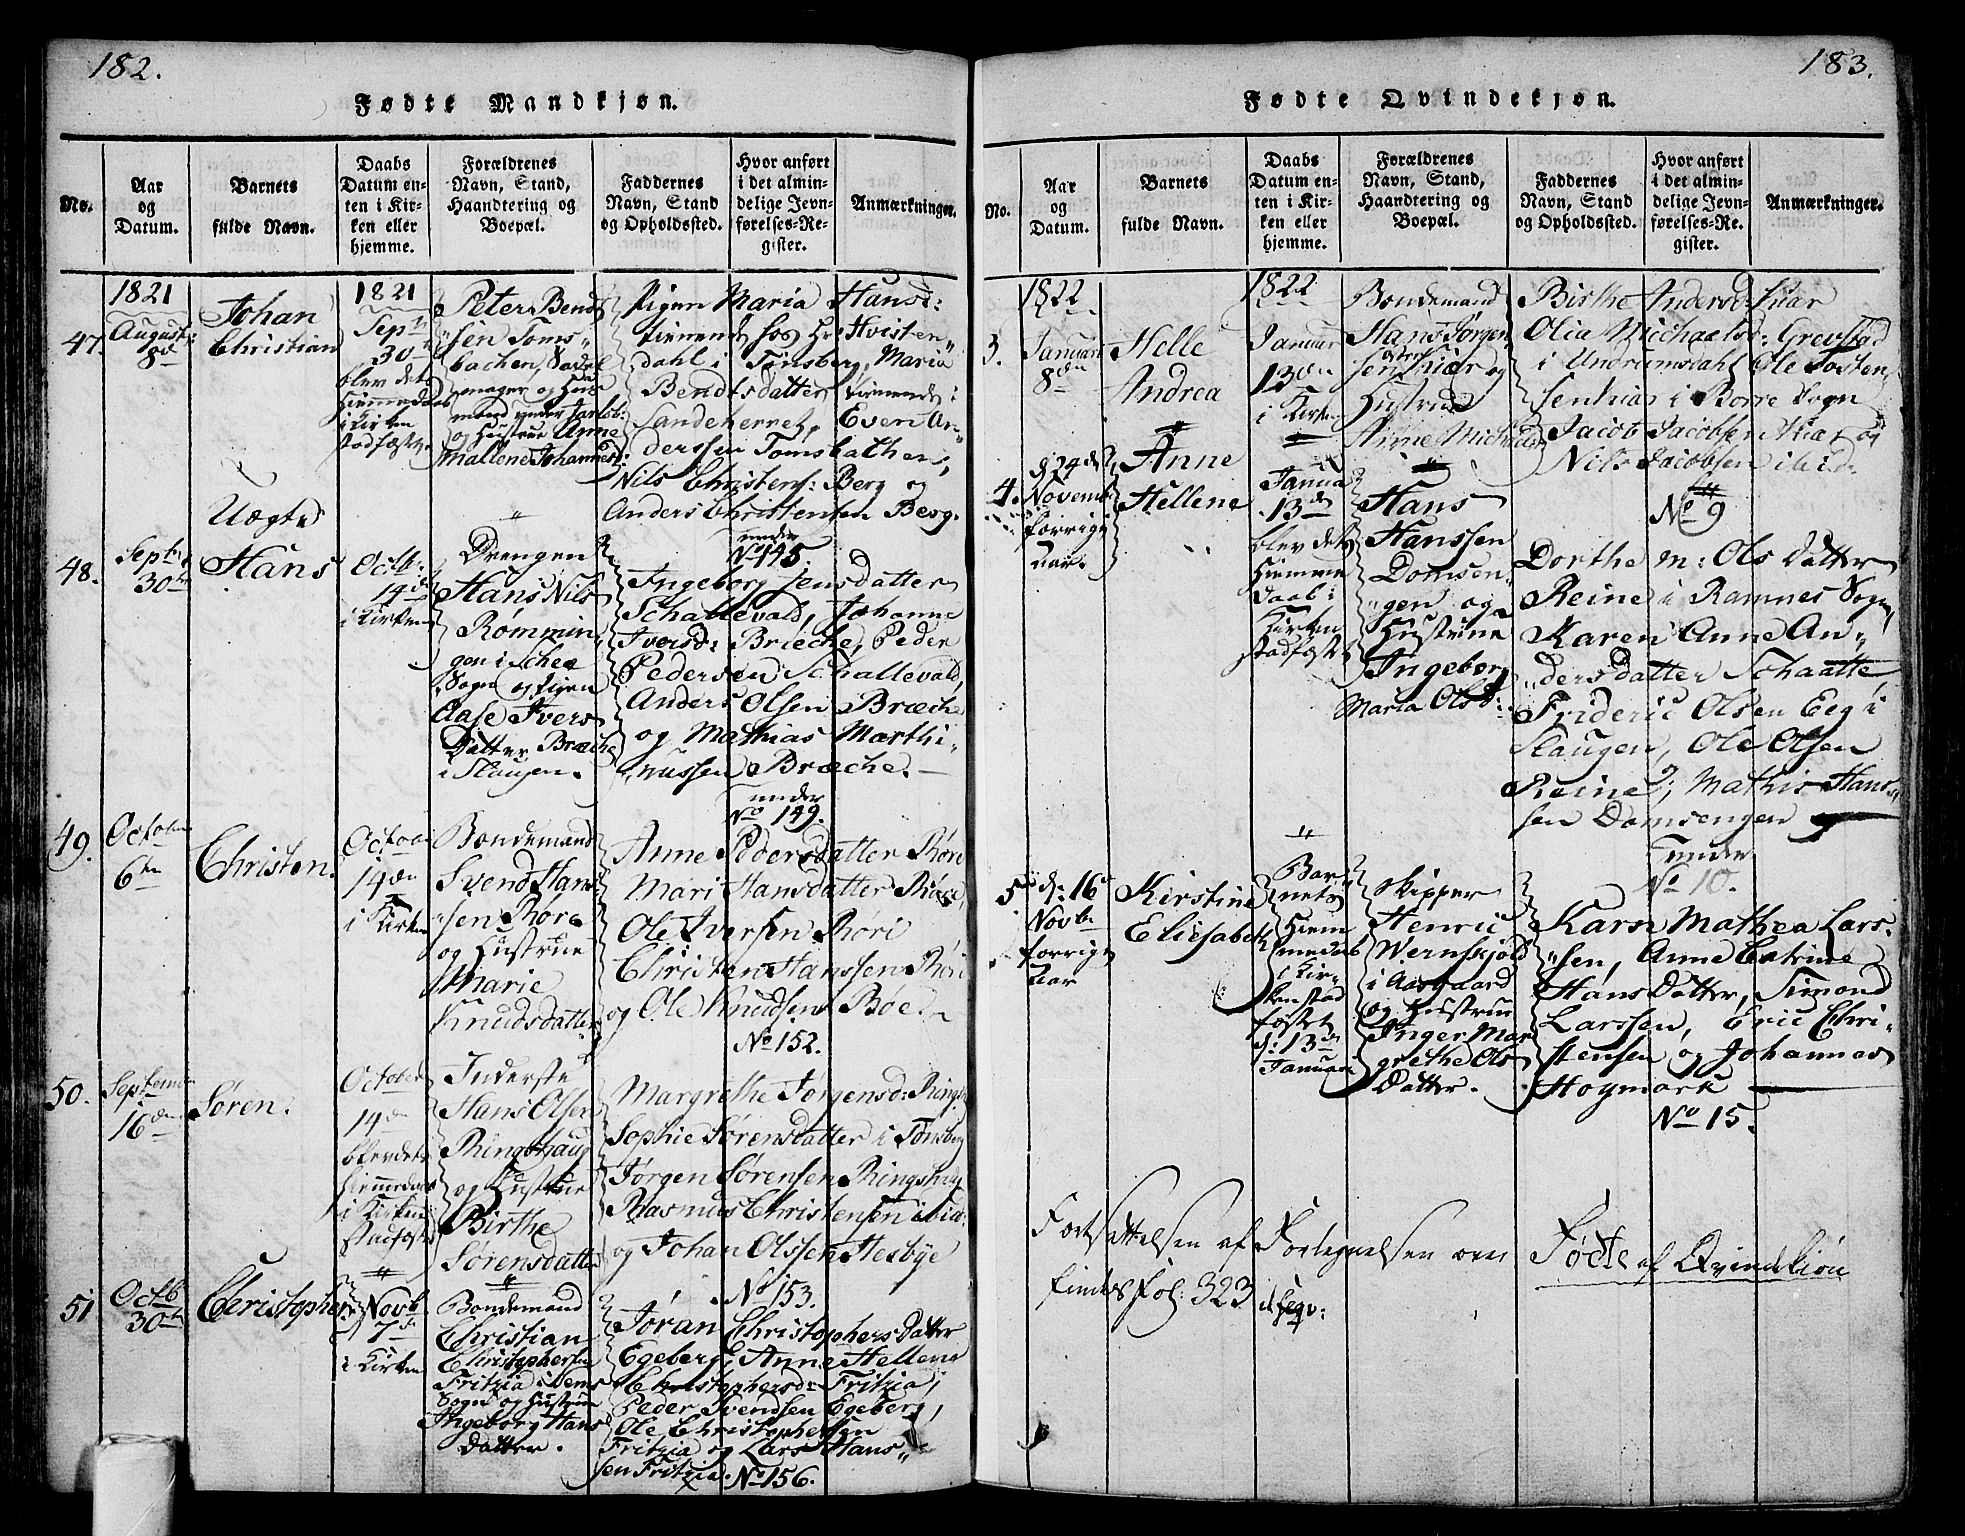 182.
Fødte Mandkjøn.
No.
Aar
og
Datum.
Barnets
fulde Navn.
Daabs
Datum en-
ten i Kir-
ken eller
hjemme.
Forældrenes
Navn, Stand,
Haandtering og
Boepæl.
Faddernes
Navn, Stand
og Opholdssted.
Hvor anført
i det almin-
delige Jevn-
førelses-Re-
gister.
Anmærkninger.
47.
1821
August:
8de
Johan
Christian
1821
Septr
30te
blev dets
Hiemmedaab
i Kirken
stadfæstet
Peter Bendt
sen Toms
bachen,
og Hustrue Anne
Mallene Johannesd:
Pigen Maria Hansd:
tienende hos Hr Hvisten
dahl i Tønsberg, Maria
Bendtsdatter tienende i
Sandeherret, Even An-
derssen Tomsbachen,
Nils Christens: Berg og
Anders Christensen Berg.
under
No 145
48.
Septr
30te
Uægte
Hans
Octb:
14de
i Kirken
Drengen
Hans Nils
Rømmin
gen i Schee
Sogn og Pigen
Aase Ivers
Datter Bræche
i Slaugen.
Ingeborg Jensdatter
Schallevald, Johanne
Iversd: Bræche, Peder
Pedersen Schallevald,
Anders Olsen Bræche
og Mathias Marthi-
nussen Bræche.
under
No 149.
49.
October
6te
Christen.
October
14de
i Kirken
Bondemand
Svend Han-
sen Røre
og Hustrue
Marie
Knudsdatter
Anne Pedersdatter Røre
Mari Hansdatter Røre,
Ole Iversen Røri
Christen Hanssen Røri
og Ole Knudsen Bøe
No 152.
50.
September
16de
Søren.
October
14de
blev dets
Hiemmedaab
i Kirken
stadfæstet
Inderste
Hans Olsen
Ringshaug
og Hustrue
Birthe
Sørensdatter
Margrethe Jørgensd: Ringsh
Sophie Sørensdatter i Tønsberg
Jørgen Sørensen Ringshaug
Rasmus Christensen ibid:
og Johan Olssen Hesbye
No 153.
51
Octb
30te
Christopher
Novb
7de
i Kirken
Bondemand
Christian
Christophersen
Fritzia i Sems
Sogn og Hustrue
Ingeborg Hans
Datter.
Jøran Christophers Datter
Egeberg, Anne Hellene
Christophersd: Fritzia,
Peder Svendsen Egeberg,
Ole Christophersen
Fritzia og Lars Hans-
sen Fritzia.
No 156.
183.
Fødte Qvindekjøn.
No.
Aar
og
Datum.
Barnets
fulde Navn.
Daabs
Datum en-
ten i Kir-
ken eller
hjemme.
Forældrenes
Navn, Stand,
Haandtering og
Boepæl.
Faddernes
Navn, Stand
og Opholdssted.
Hvor anført
i det almin-
delige Jevn-
førelses-Re-
gister.
Anmærkninger.
3.
1822
Januari
8de
Helle
Andrea
1822
Januar
13de
i Kirken
Bondemand
Hans Jørgen
sen Kiær og
Hustrue
Anne Michaelsd
Birthe Andersd: Kiær
Olia Michaelsd: Grevstad
i Undrumsdahl Ole Tosten
sen Kiær i Borre Sogn
Jacob Jacobsen Kiær og
Nils Jacobsen ibid.
No 9
4.
d 24de
Novemb
forrige
Aar.
Anne
Hellene
Janua
13de
blev dets
Hiemme
daab i
Kirken
stadfæstet
Hans
Hanssen
Domsen
gen og
Hustrue
Ingeborg
Maria Olsd:
Dorthe m: Ols Datter
Reine i Ramnes Sogn,
Karen Anne An-
dersdatter Schaatte
Frideric Olsen Eeg i
Slaugen, Ole Olsen
Reine, Mathis Hans-
sen Domsengen
under
No 10.
5
d: 16de
Novbr
forrige
Aar
Kirstine
Eliesabeth
Bar
nets
Hiem
medaab
i Kir-
ken stad
fæstet
d: 13de
Januari
Skipper
Henric
Wernskjold
i Aasgaard
og Hustrue
Inger Mar
grethe Ols
Datter.
Karen Mathea Lars-
sen, Anne Catrine
Hans Datter, Simond
Larssen, Eric Chri-
stensen og Johannes
Hogmark
No 15.
Fortsættelsen af Fortegnelsen over Fødte af Qvindekiøn
findes Fol: 323 et seqv: